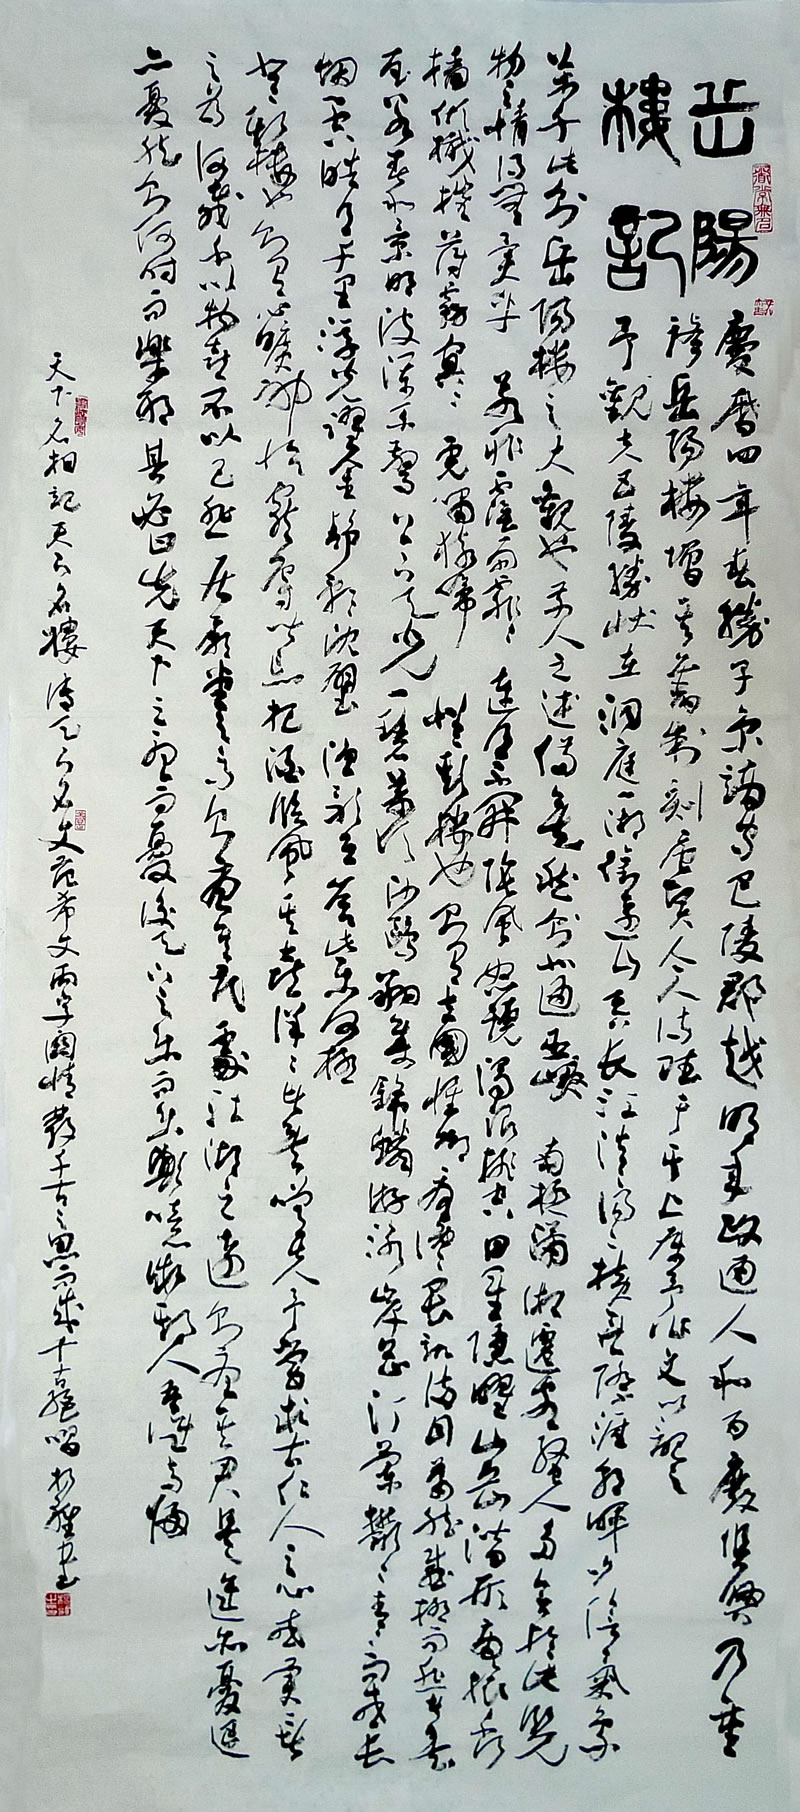 岳陽
樓記
慶曆四年春滕子京謫守巴陵郡越明年政通人和百廢俱興乃重
修岳陽樓增其舊制刻唐賢今人詩賦于其上屬予作文以記之
予觀夫巴陵勝狀在洞庭一湖銜遠山吞長江浩湯〻橫無際涯朝暉夕陰氣象
萬千此則岳陽樓之大觀也前人之述備矣然則北通巫峽南極瀟湘遷客騷人多會於此覽
物之情得無異乎若夫霪雨霏〻連月不開陰風怒號濁浪排空日星隱曜山岳潛形商旅不行
檣傾楫摧薄暮冥〻虎嘯猿啼登斯樓也則有去國懷鄉憂讒畏譏滿目蕭然感極而悲者矣
至若春和景明波瀾不驚上下天光一碧萬頃沙鷗翔集錦鱗游泳岸芷汀蘭鬱〻青〻而或長
烟一空皓月千里浮光躍金靜影沉璧漁歌互答此樂何極
登斯樓也則有心曠神怡寵辱皆忘把酒臨風其喜洋〻者矣嗟夫予嘗求古仁人之心或異二者
之為何哉不以物喜不以己悲居廟堂之高則憂其民處江湖之遠則憂其君是進亦憂退
亦憂然則何時而樂耶其必曰先天下之憂而憂後天下之樂而樂歟噫微斯人吾誰與歸
天下名相記天下名樓傳天下名文范希文兩字關情數千古之思而成千古絕唱書